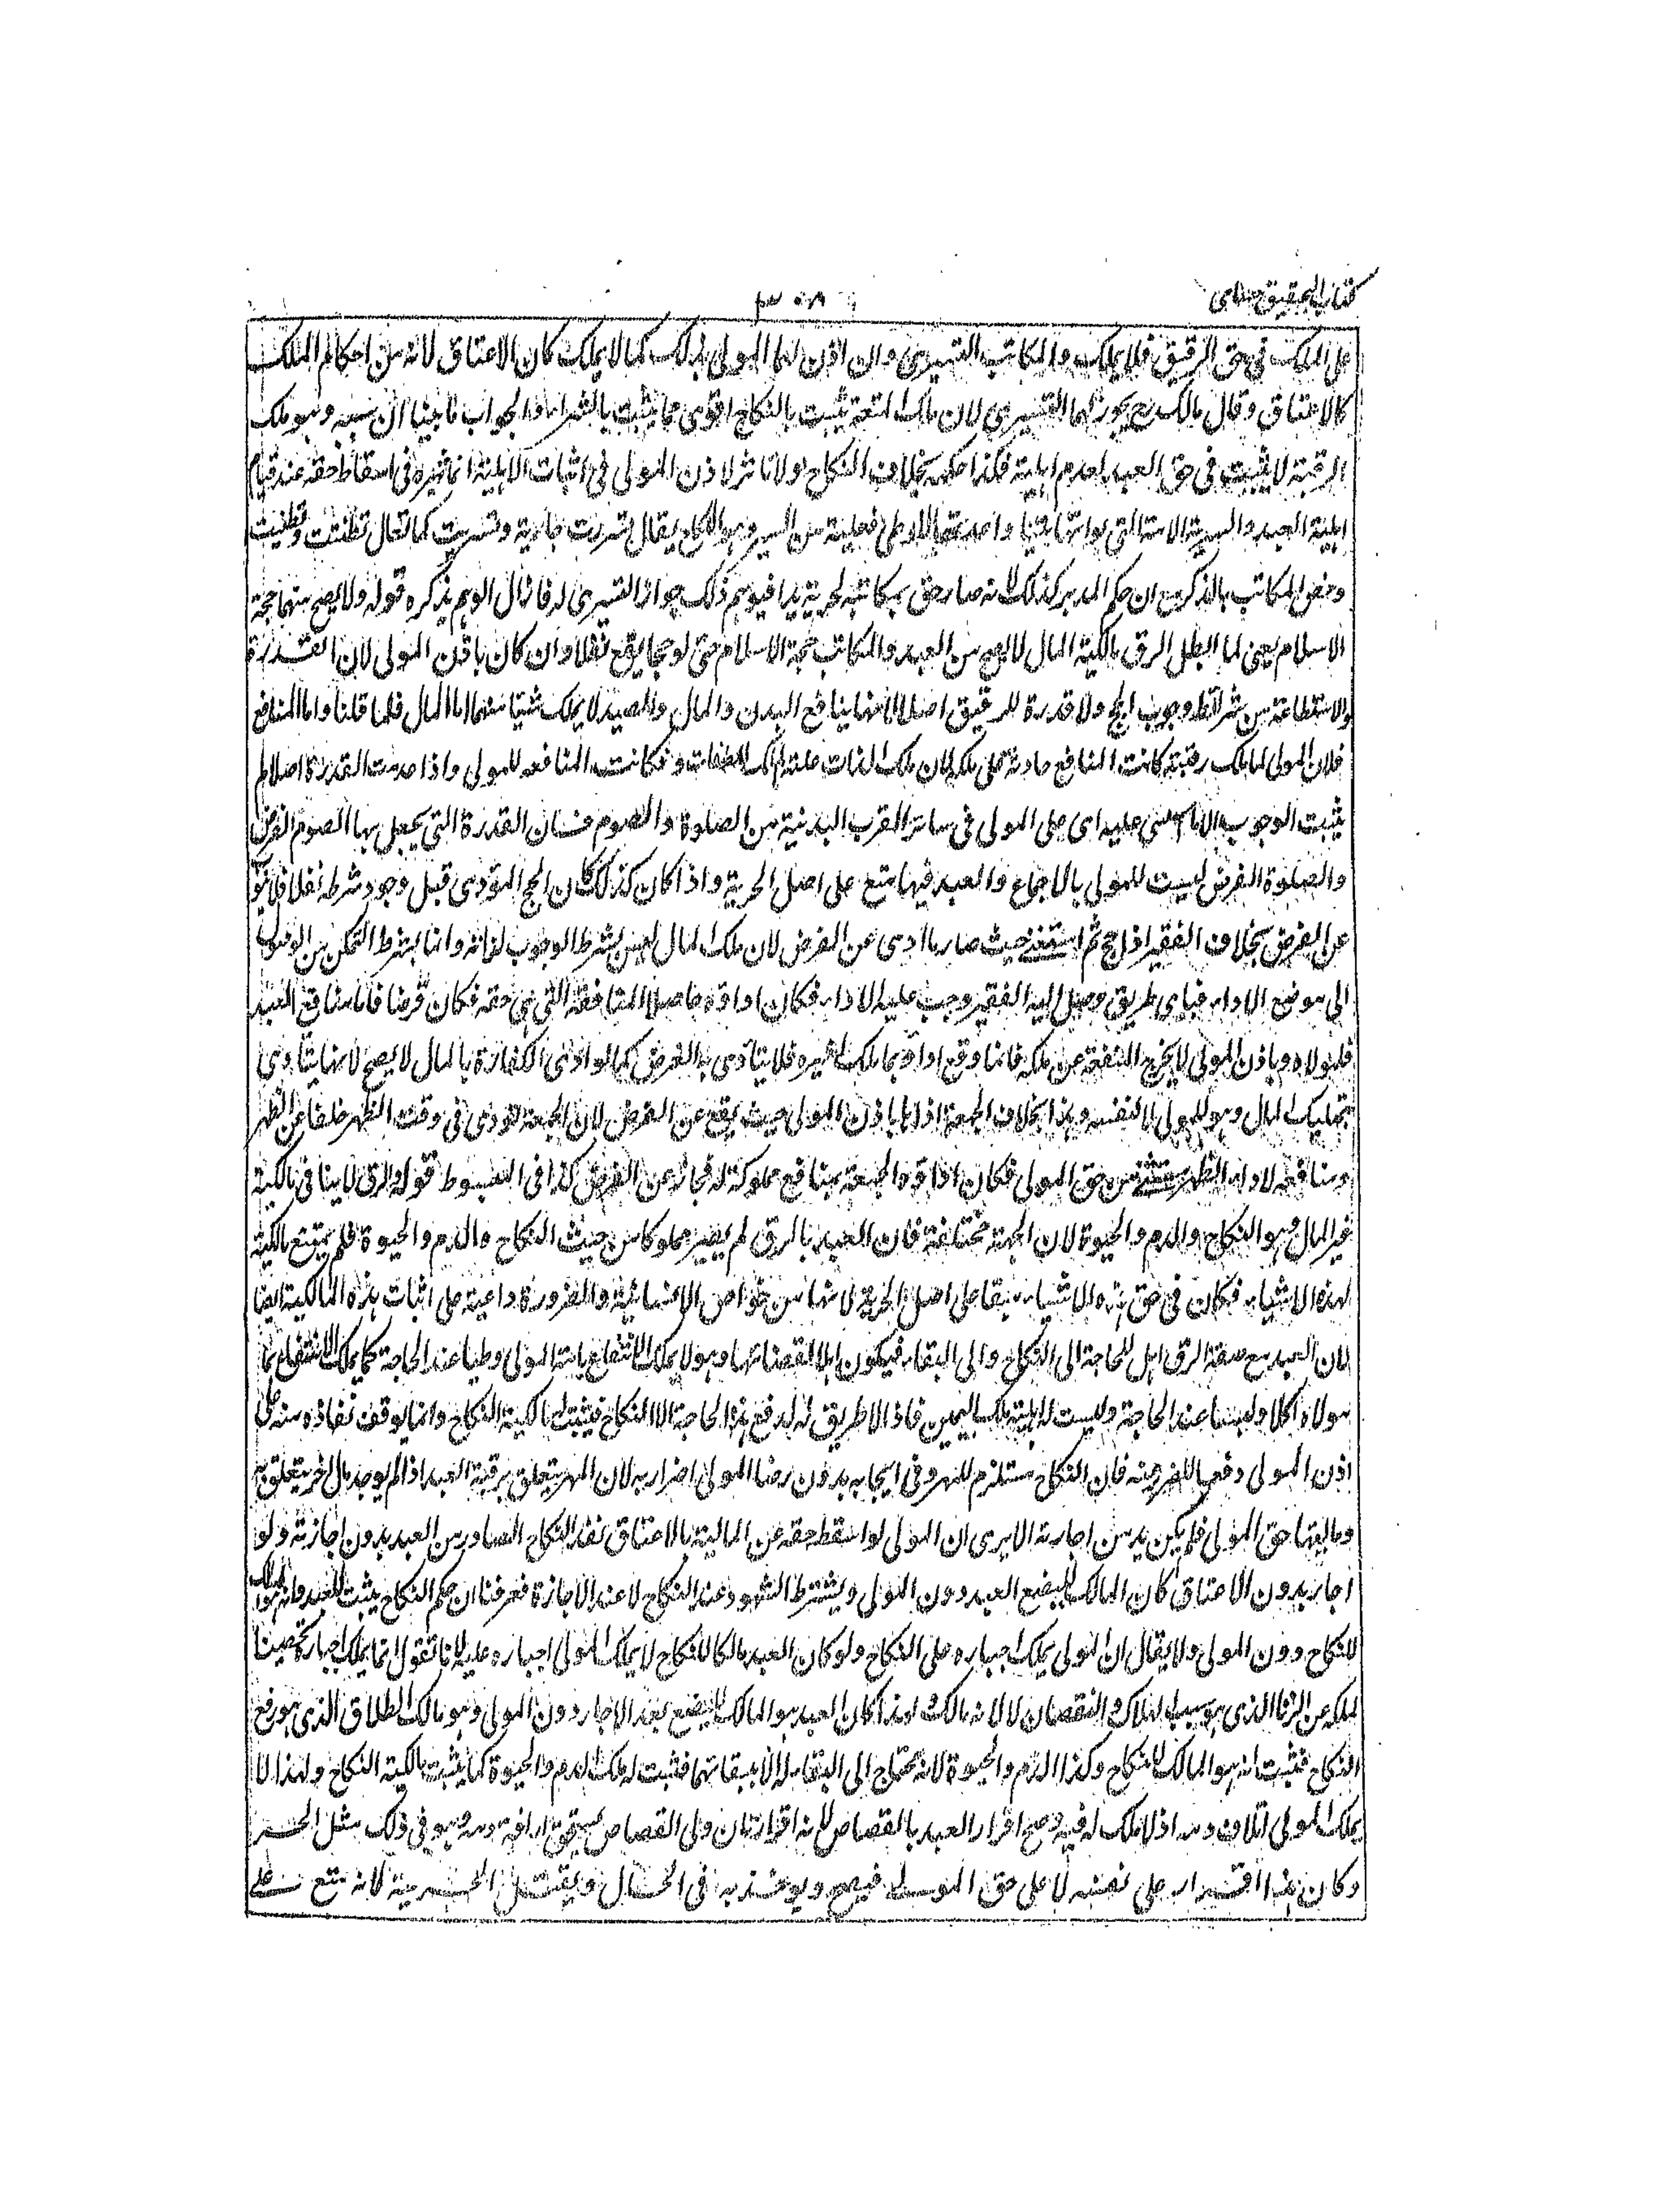 كتاب التحقيق حسامى
على الملك فى حق الرقيق فلا يملك والمكاتب التسرى وان اذن لهما المولى بذلك كما لا يملك كان الاعتاق لانه من احكام الملك
كالاعتاق وقال مالك رح يجوز لهما التسرى لان ملك المتعة يثبت بالنكاح اقوى مما يثبت بالشراء والجواب ما بينا ان سببه وهو ملك
الرقبة لا يثبت فى حق العبد لعدم اهلية فكذا حكمه بخلاف النكاح ولا تاثر لاذن المولى فى اثبات الاهلية انما تاثيره فى اسقاط حقه عند قيام
اهلية العبد والسرية الامة التى بوأتها بيتا واعددتها للوطى فعلية من السر وهو النكاح يقال تسررت جارية وتسريت كما تقال تظننت وتظنيت
وخص المكاتب بالذكر مع ان حكم المدبر كذلك لانه صار احق بمكاسبه لحرية يدا فيوهم ذلك جواز التسرى له فازال الوهم بذكره قوله ولا يصح منهما حجة
الاسلام يعنى لما ابطل الرق مالكية المال لا يصح من العبد والمكاتب حجة الاسلام حتى لو حجا يقع نفلا وان كان باذن المولى لان القدرة
والاستطاعة من شرائط وجوب الحج ولا قدرة للرقيق اصلا لانها بمنافع البدن والمال والعبد لا يملك شيئا منهما اما المال فلما قلنا واما المنافع
فلان المولى لما ملك رقبته كانت المنافع حادثة على ملكه لان ملك الذات علة لملك الصفات فكانت المنافعه للمولى واذا عدمت القدرة اصلا لم
يثبت الوجوب الا ما استثنى عليه اى على المولى فى سائر القرب البدنية من الصلوة والصوم فان القدرة التى يحصل بها الصوم الفرض
والصلوة الفرض ليست للمولى بالاجماع والعبد فيها متبع على اصل الحرية واذا كان كذلك كان الحج المؤدى قبل وجود شرطه نفلا فلا ينوب
عن الفرض بخلاف الفقير اذا حج ثم استغنى حيث صار ما ادى عن الفرض لان ملك المال ليس بشرط الوجوب لذاته وانما يشترط التمكن من الوصول
الى موضع الاداء فباى طريق وصل اليه الفقير وجب عليه الاداء فكان اداؤه حاصلا بالمنافعة التى هى حقه فكان فرضا فاما منافع العبد
فلمولاه وباذن المولى لا يخرج المنفعة عن ملكه فانما وقع اداؤه بما ملك لغيره فلا يتأدى به الفرض كما لو ادى الكفارة بالمال لا يصح لانها يتأدى
بتمليك المال وهو للمولى لا لنفسه وهذا بخلاف الجمعة اذا اداها باذن المولى حيث يقع عن الفرض لان الجمعة تؤدى فى وقت الظهر خلفا عن الظهر
ومنافعه لاداء الظهر مستثنى من حق المولى فكان اداؤه الجمعة بمنافع مملوكة له فجاز عن الفرض كذا فى المبسوط قوله والرق لا ينافى مالكية
غير المال وهو النكاح والدم والحيوة لان الجهة مختلفة فان العبد بالرق لم يصير مملوكا من حيث النكاح والدم والحيوة فلم يمتنع مالكية
لهذه الاشياء فكان فى حق هذه الاشياء مبقا على اصل الحرية لانها من خواص الانسانية والضرورة داعية على اثبات هذه المالكية ايضا
لان العبد مع صفة الرق اهل للحاجة الى النكاح والى البقاء فيكون اهلا لقضائها وهو لا يملك الانتفاع بامة المولى وطيا عند الحاجة كما يملك الانتفاع بما
مولاه اكلا ولبسا عند الحاجة وليست له اهلية ملك اليمين فاذا لا طريق له لدفع هذه الحاجة الا النكاح فيثبت له مالكية النكاح وانما يوقف نفاذه منه على
اذن المولى دفعا للضرر عنه فان النكاح مستلزم للمهر وفى ايجابه بدون رضا المولى اضرار به لان المهر يتعلق برقبة العبد اذا لم يوجد مال اخر يتعلق به
وماليتها حق المولى فلم يكن بد من اجازته الا يرى ان المولى لو اسقط حقه عن المالية بالاعتاق نفذ النكاح الصادر من العبد بدون اجازته ولو
اجاز بدون الاعتاق كان المالك للبضع العبد دون المولى ويشترط الشهود عند النكاح لا عند الاجازة فعرفنا ان حكم النكاح يثبت للعبد وانه هو المالك
للنكاح دون المولى ولا يقال ان المولى يملك اجباره على النكاح ولو كان العبد مالكا للنكاح لا يملك المولى اجباره عليه لانا نقول انما يملك اجباره تحصينا
لملكه عن الزنا الذى هو سبب الهلاك والنقصان لا لانه مالك لهذا كان العبد هو المالك للبضع بعد الاجار دون المولى وهو مالك الطلاق الذى هو رفع
النكاح فثبت انه هو المالك للنكاح وكذا الدم والحيوة لانه يحتاج الى البقاء له الا ببقائهما فثبت له ملك الدم والحيوة كما يثبت مالكية النكاح ولهذا لا
يملك المولى اتلاف دمه اذ لا ملك له فيه وصح اقرار العبد بالقصاص لانه اقرار بان ولى القصاص يستحق اراقة دمه وهو فى ذلك مثل الحر
وكان هذا اقرار على نفسه لا على حق المولى فيصح ويوخذ به فى الحال ويقتل الحرية لانه متبع على